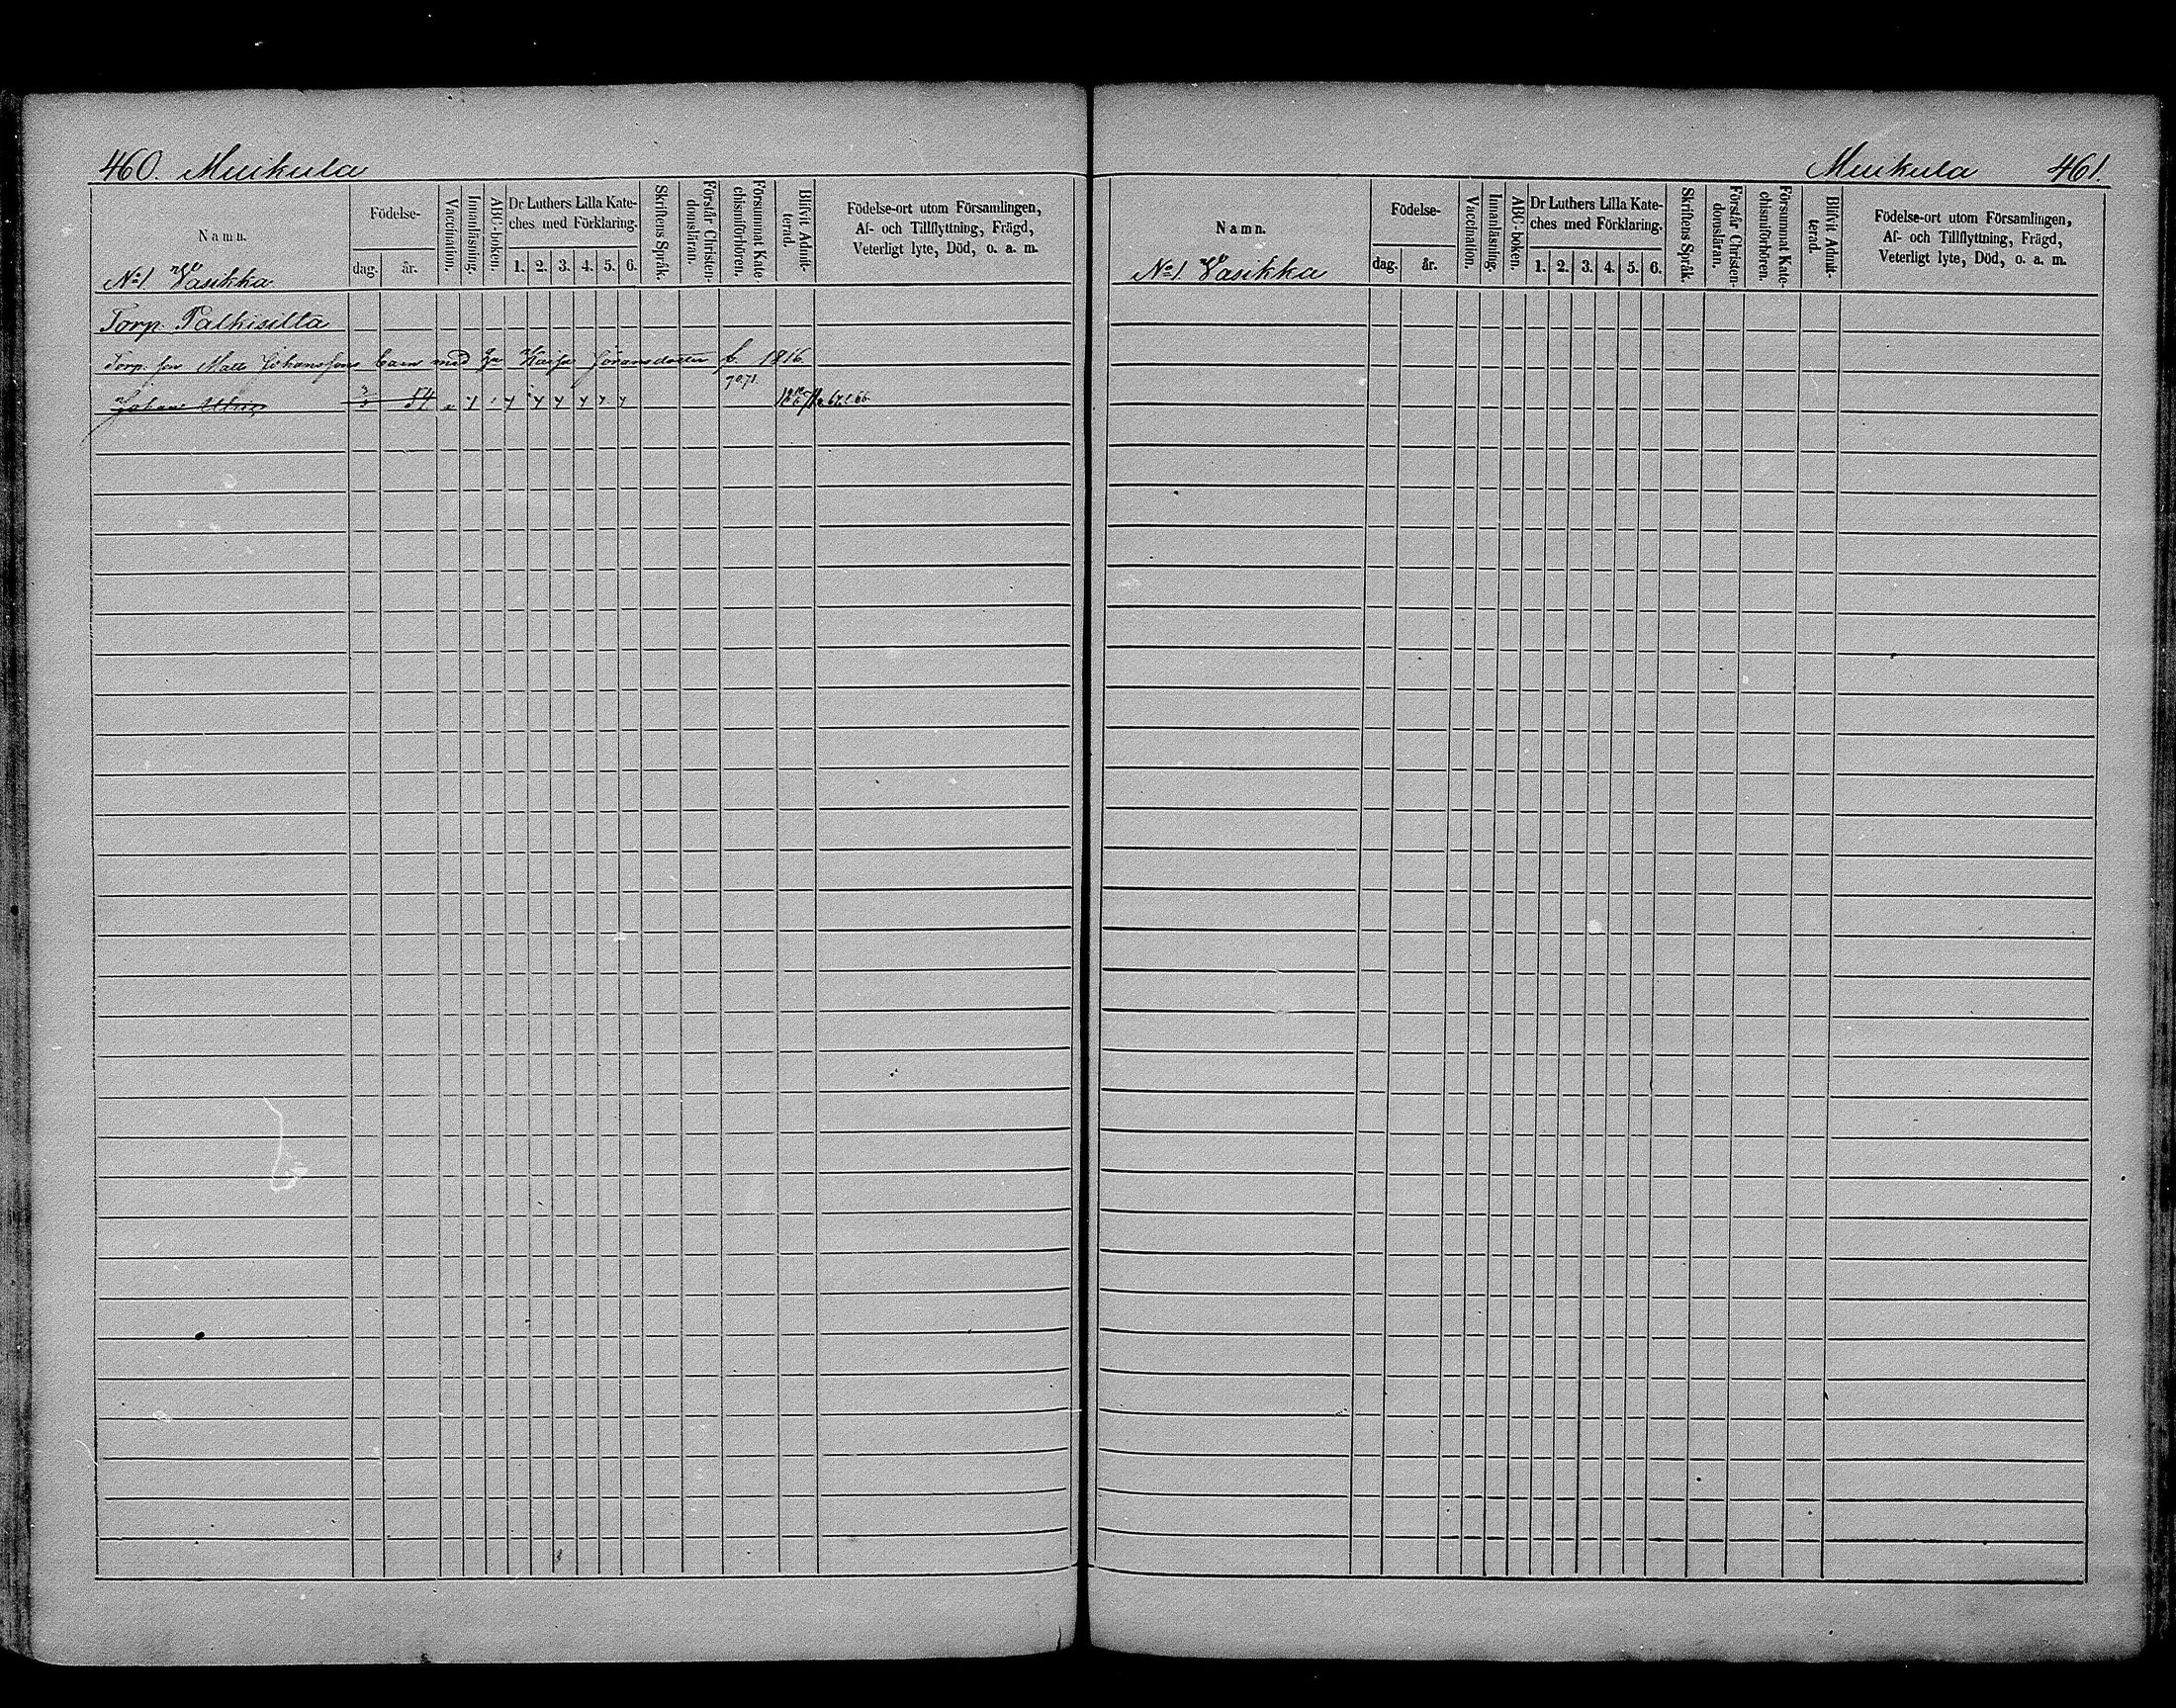 460. Muikula
Namn.
Födelse-
dag.
år.
Vaccination.
Innanläsning.
ABC-boken.
Dr Luthers Lilla Kate-
ches med Förklaring.
1. 2. 3. 4. 5. 6.
Skriftens Språk.
Förstår Christen-
domsläran.
Försummat Kate-
chismiförhören.
Blifvit Admit-
terad.
Födelse-ort utom Församlingen,
Af- och Tillflyttning, Frägd,
Veterligt lyte, Död, o. a. m.
No 1 Vasikka
Torp. Palkisilta
Torp. son Matts Johanssons barn med Kaisa Göransdotter f. 1816
70.71.
Johan 54
Muikula 461.
Namn.
Födelse-
dag.
år.
Vaccination.
Innanläsning.
ABC-boken.
Dr Luthers Lilla Kate-
ches med Förklaring.
1. 2. 3. 4. 5. 6.
Skriftens Språk.
Förstår Christen-
domsläran.
Försummat Kate-
chismiförhören.
Blifvit Admit-
terad.
Födelse-ort utom Församlingen,
Af- och Tillflyttning, Frägd,
Veterligt lyte, Död, o. a. m.
No 1 Vasikka